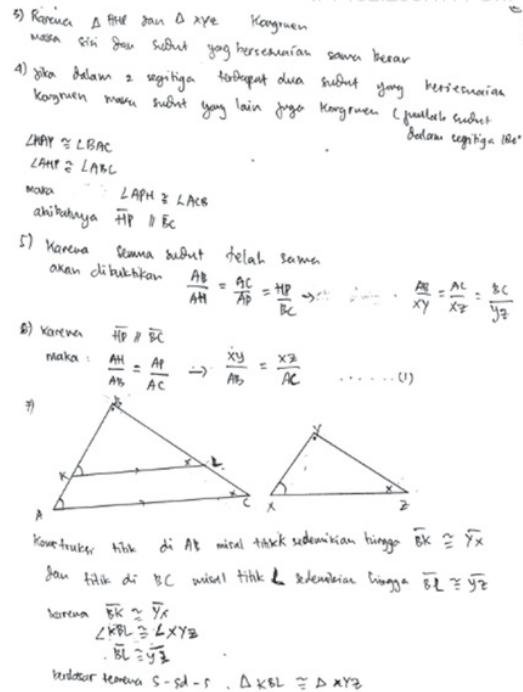 3) Karena Δ AHP dan Δ XYZ Kongruen
maka sisi dan sudut yang bersesuaian sama besar
4) Jika dalam 2 segitiga terdapat dua sudut yang bersesuaian
kongruen maka sudut yang lain juga kongruen (jumlah sudut
dalam segitiga 180°
∠HAP ≅ ∠BAC
∠AHP ≅ ∠ABC
maka ∠APH ≅ ∠ACB
akibatnya HP // BC
5) Karena semua sudut telah sama
akan dibuktikan AB/AH = AC/AP = HP/BC → AB/XY = AC/XZ = BC/YZ
6) Karena HP // BC
maka : AH/AB = AP/AC → XY/AB = XZ/AC ......(1)
7)
B
K
L
A
C
Y
X
Z
Konstruksi titik di AB misal titik K sedemikian hingga BK ≅ YX
dan titik di BC misal titik L sedemikian hingga BL ≅ YZ
karena BK ≅ YX
∠KBL ≅ ∠XYZ
BL ≅ YZ
berdasar teorema s-sd-s . Δ KBL ≅ Δ XYZ